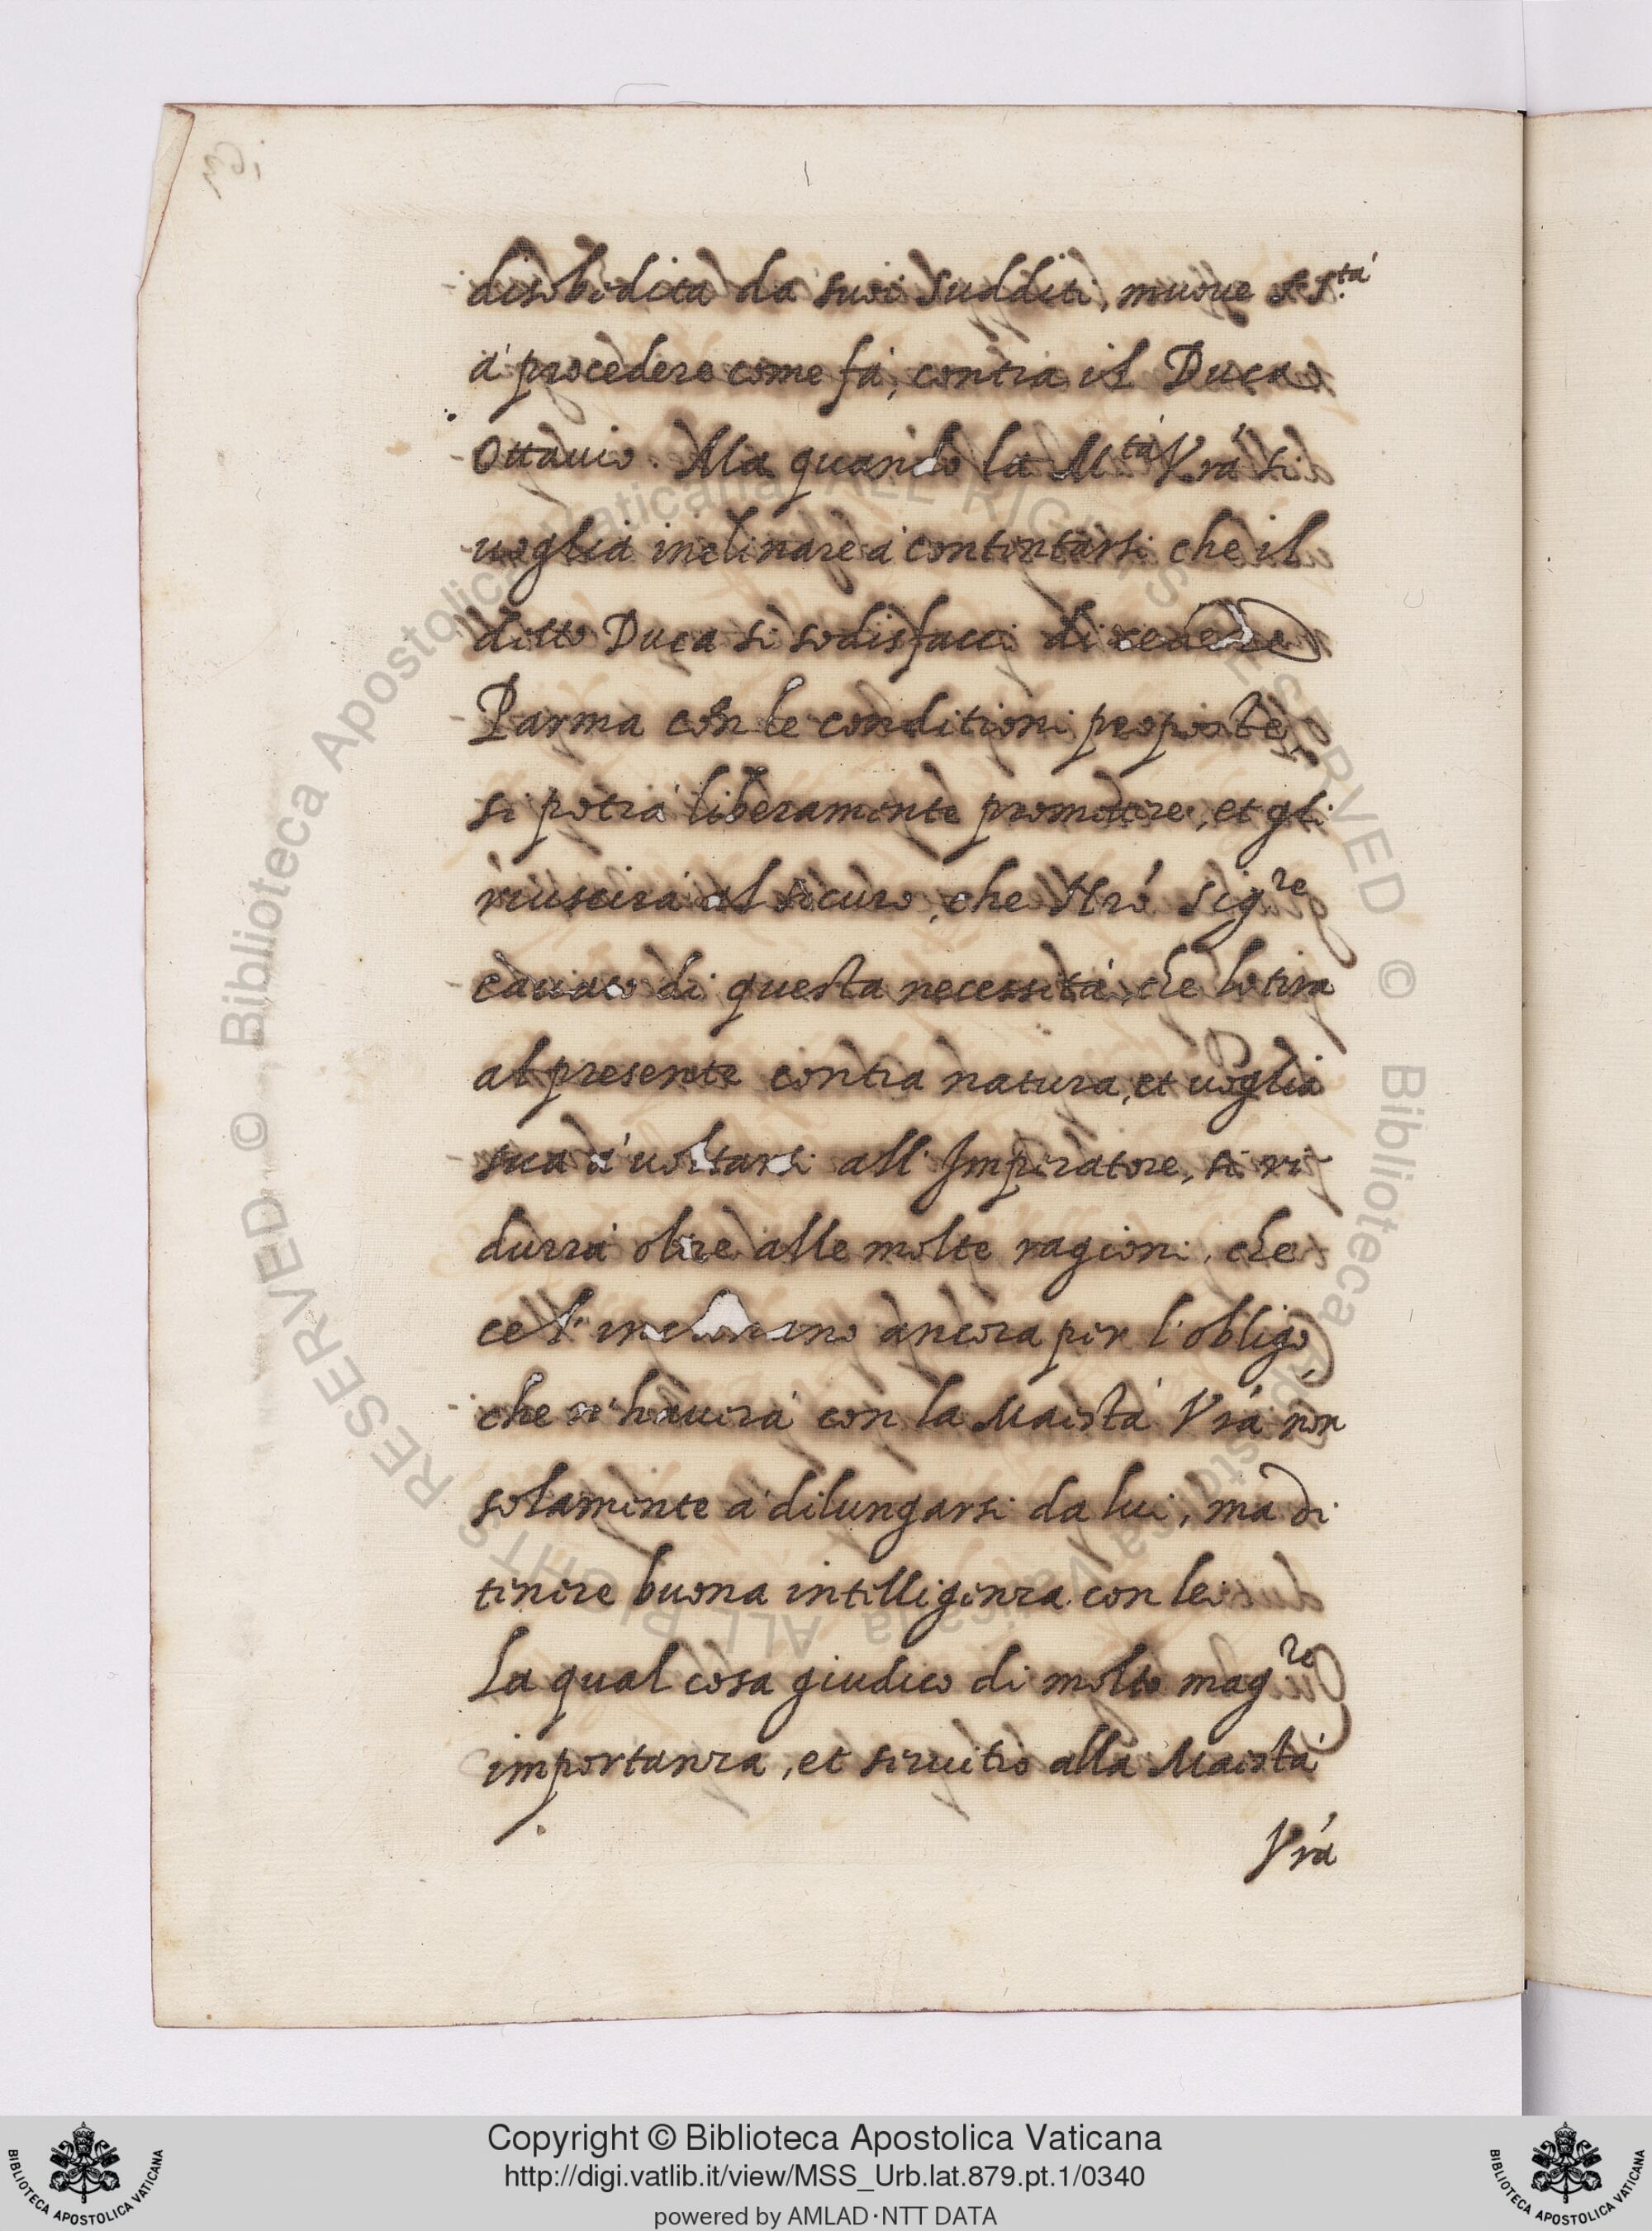 disobedita da suoi sudditi, muoue S. S.tà
à procedere come fà, contra il Duca
Ottauio. Ma quando la M.tà Vrá si
uoglia inclinare à contentarsi che il
ditto Duca si sodisfacci di cedere
Parma con le conditioni proposte,
si potrà liberamente promettere, et gli
riuscirà al sicuro, che Nró Sigre
cauato di questa necessità, che lo tira
al presente contra natura, et uoglia
sua à uoltarsi all'Imperatore, si ri
durrà oltre alle molte ragioni, che
ce l'inclinano ancora per l'obligo,
che n'hauerà con la Maestà Vrá non
solamente à dilungarsi da lui, ma di
tenere buona intelligenza con lei
La qual cosa giudico di molto magre
importanza, et seruitio alla Maestà
Vrá
Copyright © Biblioteca Apostolica Vaticana
http://digi.vatlib.it/view/MSS_Urb.lat.879.pt.1/0340
powered by AMLAD·NTT DATA
BIBLIOTECA APOSTOLICA VATICANA
BIBLIOTECA APOSTOLICA VATICANA
© Biblioteca Apostolica Vaticana ALL RIGHTS RESERVED © Biblioteca Apostolica Vaticana ALL RIGHTS RESERVED